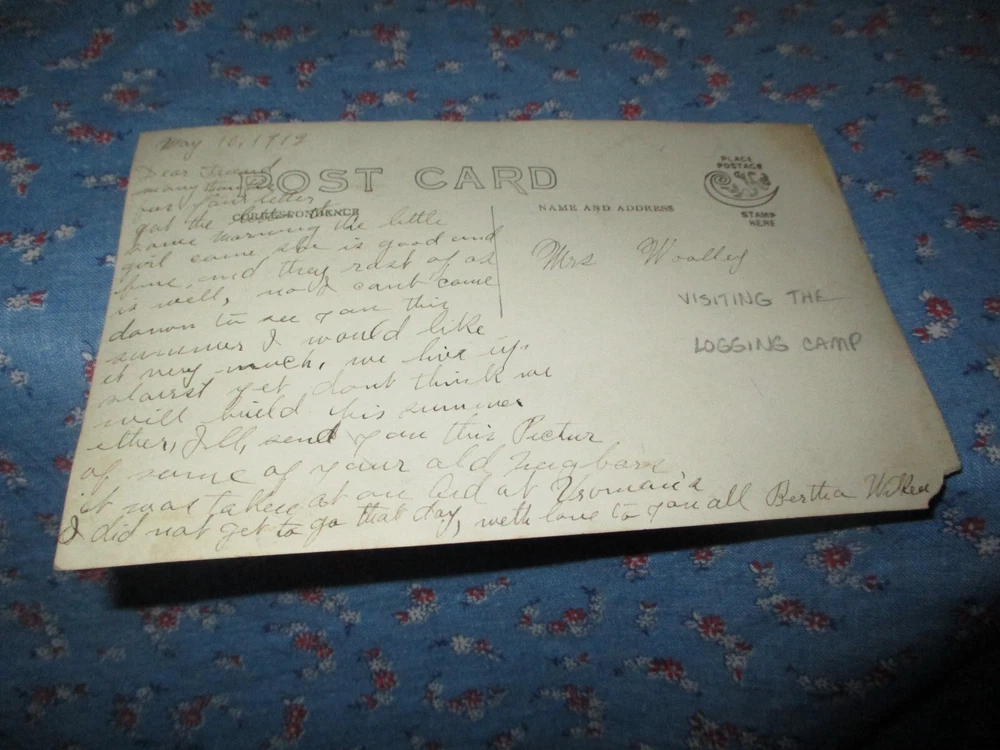 May 10, 1912
Dear Friend
many thanks
for your letter
got the
same morning the little
girl came she is good and
fine, and they rast of os
is well, no I cant come
dawn to see you this
summer I would like
it very much, we live up
starst yet dont think we
will build this summer
ether, I'll send you this Pictur
of same of your old nagbars
it was taken at an Aid at Vroman's
I did not get to go that day, weth love to you all Bertha
POST CARD
CORRESPONDENCE
NAME AND ADDRESS
PLACE
POSTAGE
STAMP
HERE
Mrs Woolley
VISITING THE
LOGGING CAMP